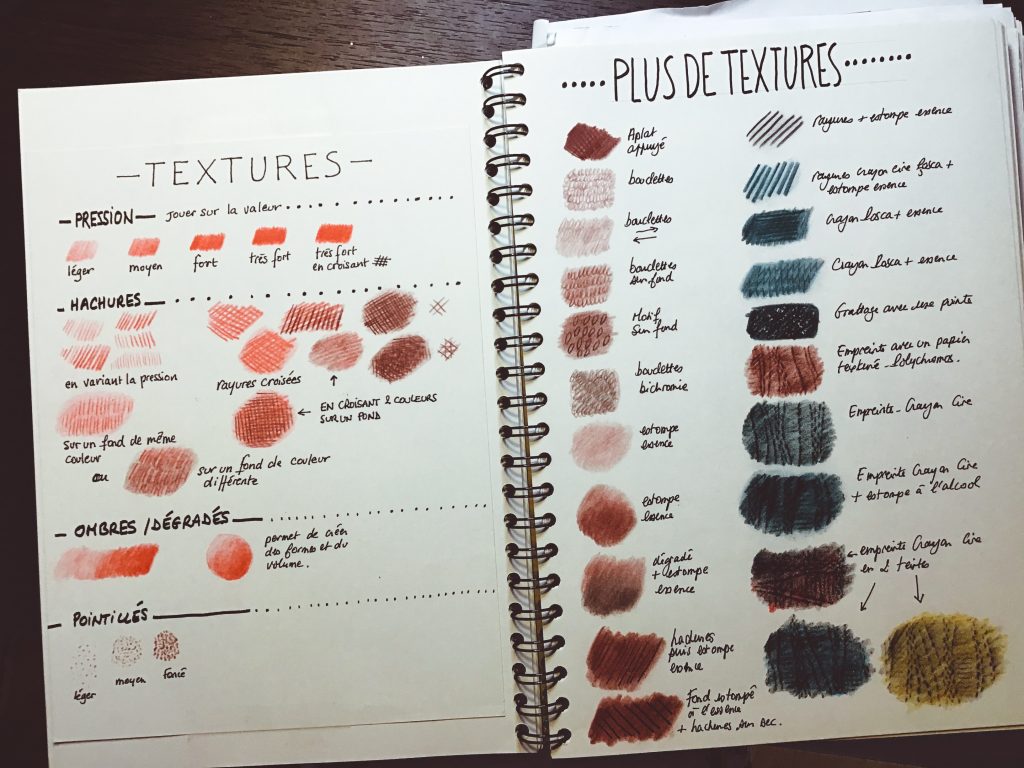 – TEXTURES –
– PRESSION – Jouer sur la valeur
léger
moyen
fort
très fort
très fort
en croisant
– HACHURES –
en variant la pression
rayures croisées
EN CROISANT 2 COULEURS
SUR UN FOND
sur un fond de même
couleur
ou
sur un fond de couleur
différente
– OMBRES / DÉGRADÉS –
permet de créer
des formes et du
volume.
– POINTILLÉS
léger
moyen
foncé
..... PLUS DE TEXTURES ........
Aplat
appuyé
bouclettes
bouclettes
bouclettes
sur fond
Motif
sur fond
bouclettes
bichromie
estompe
essence
estompe
essence
dégradé
+ estompe
essence
hachures
puis estompe
essence
Fond estompé
à l'essence
+ hachures sur sec.
rayures + estompe essence
rayures crayon cire fosca +
estompe essence
Crayon fosca + essence
Crayon fosca + essence
Grattage avec une pointe
Empreinte avec un papier
texturé - Polychromos.
Empreinte - Crayon Cire
Empreinte Crayon Cire
+ estompe à l'alcool
empreinte Crayon Cire
en 2 teintes